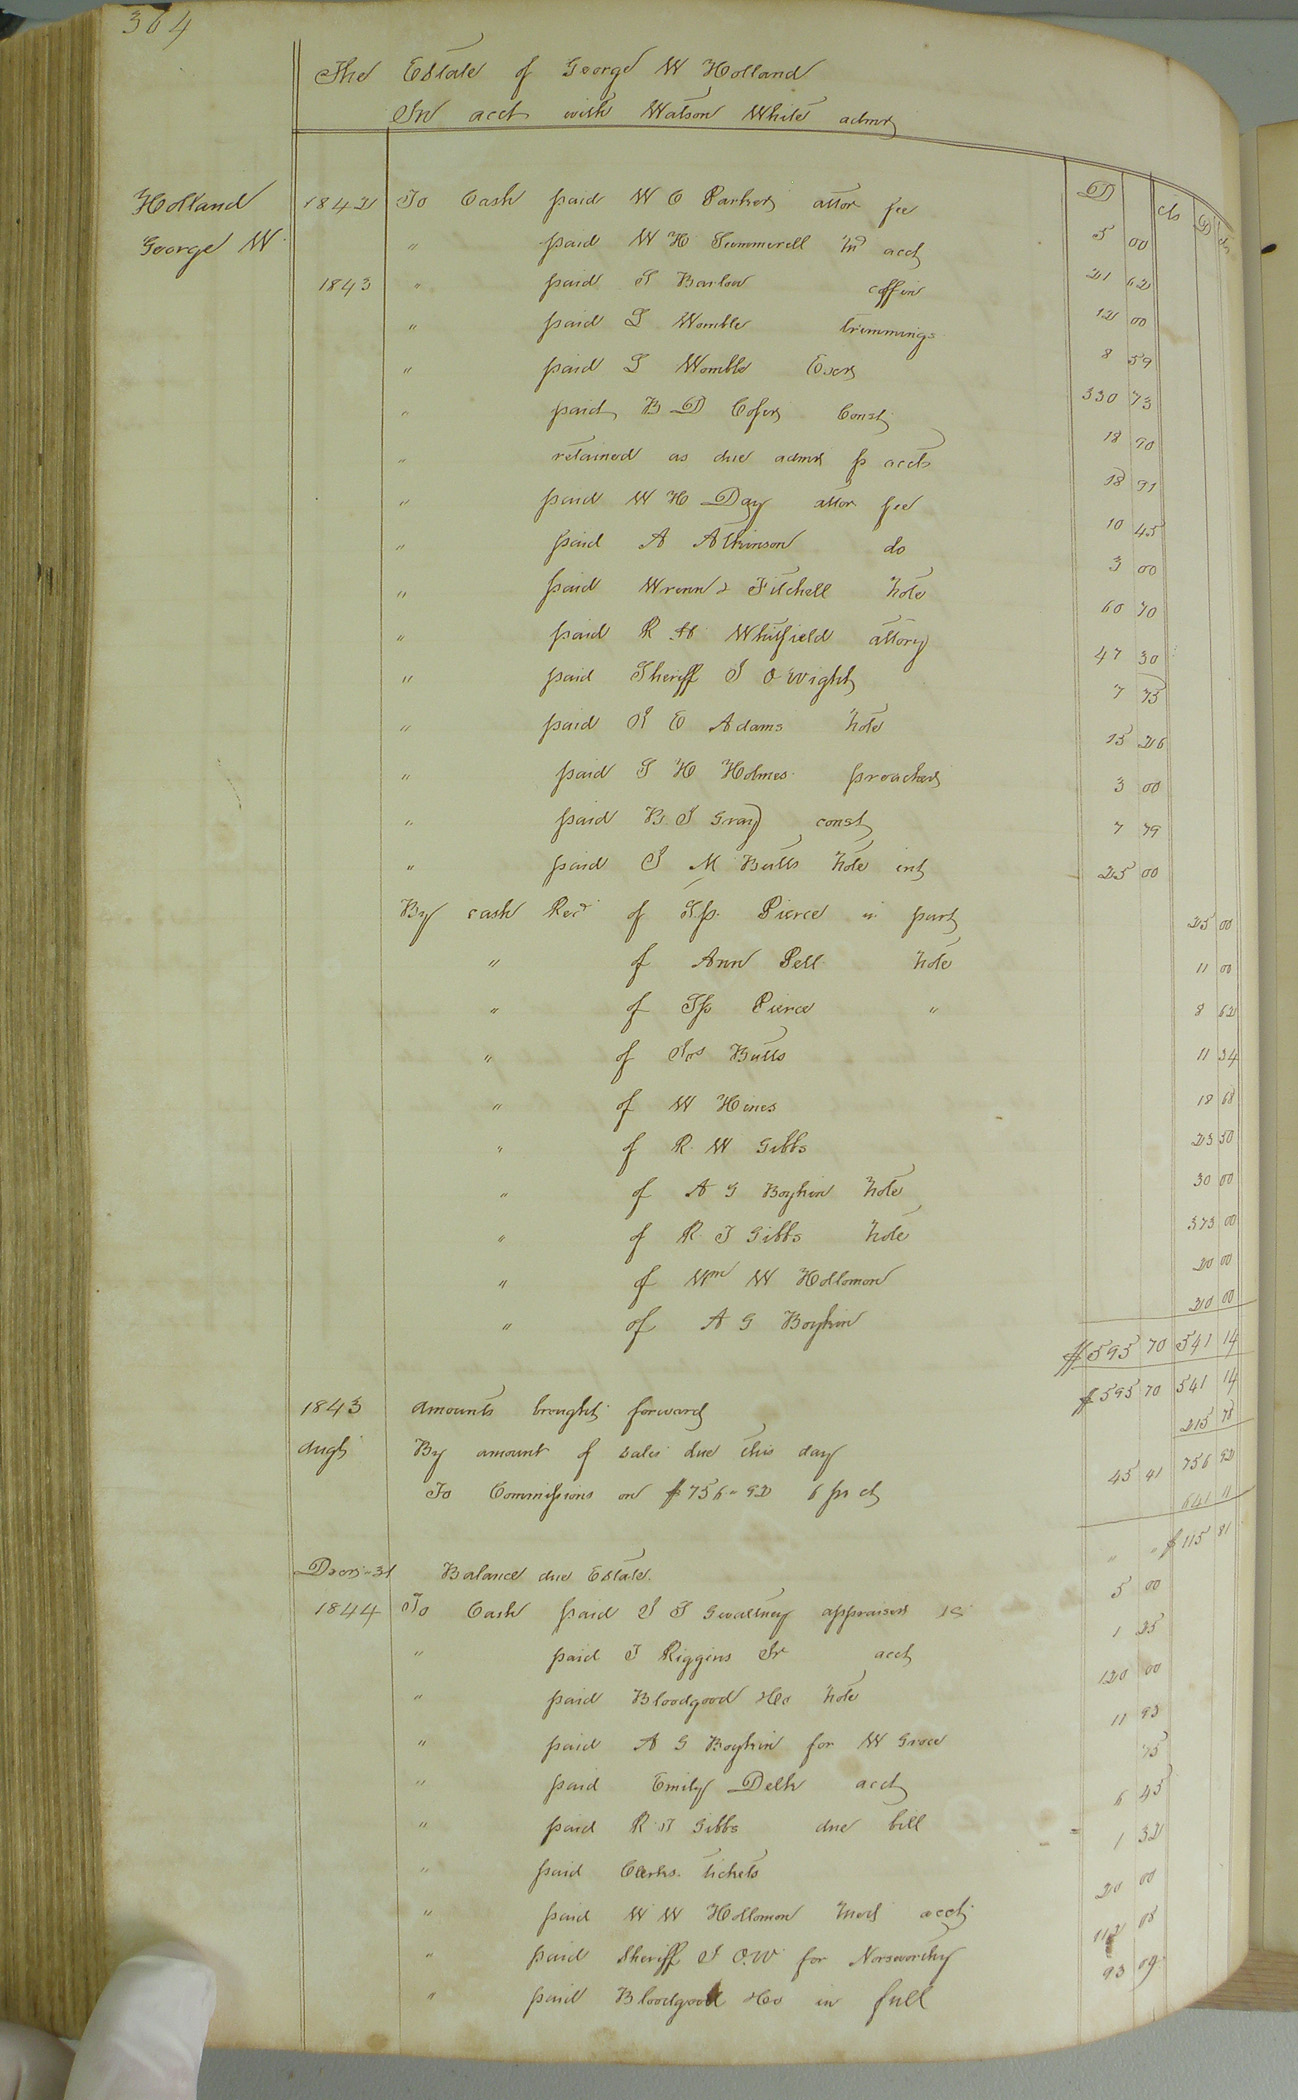 364
The Estate of George W Holland
In acct with Watson White admr
D cts D cts
Holland 1842 To Cash paid W O Parker attor fee 5 00
George W. " paid W H Summerell Md acct 21 62
1843 " paid J Barlow coffin 12 00
" paid J Womble trimmings 8 59
" paid J Womble Exor 330 73
" paid B D Cofer Const 18 90
" retained as due admr p accts 18 91
" paid W H Day attor fee 10 45
" paid A Atkinson do 3 00
" paid Wrenn & Fitchell note 60 70
" paid R H Whitfield attory 47 30
" paid Sheriff J O Wight 7 75
" paid J E Adams note 15 26
" paid J H Holmes preacher 3 00
" paid B J Gray const 7 79
" paid J M Butts note int 25 00
By cash Recd of Tp. Pierce in part 25 00
" of Ann Pell note 11 00
" of Tp Pierce " 8 62
" of Jos Butts 11 34
" of W Hines 18 68
" of R W Gibbs 23 50
" of A G Boykin note 30 00
" of R J Gibbs note 373 00
" of Wm W Hollomon 20 00
" of A G Boykin 20 00
$595 70 541 14
1843 amounts brought forward $595 70 541 14
Augt By amount of sales due this day 215 78
756 92
To Commissions on $756-92 6 pr ct 45 41
641 11
Decr-31 Balance due Estate. " " $115 81
1844 To Cash paid J J Gwaltney appraiser 5 00
" paid J Riggins Sr acct 1 25
" paid Bloodgood &Co note 120 00
" paid A G Boykin for W Grove 11 93
" paid Emily Delk acct 75
" paid R J Gibbs due bill 6 45
" paid Clerks tickets 1 32
" paid W W Hollomon Med acct 20 00
" paid Sheriff J O.W for Norsworthy 112 08
" paid Bloodgood &Co in full 93 09